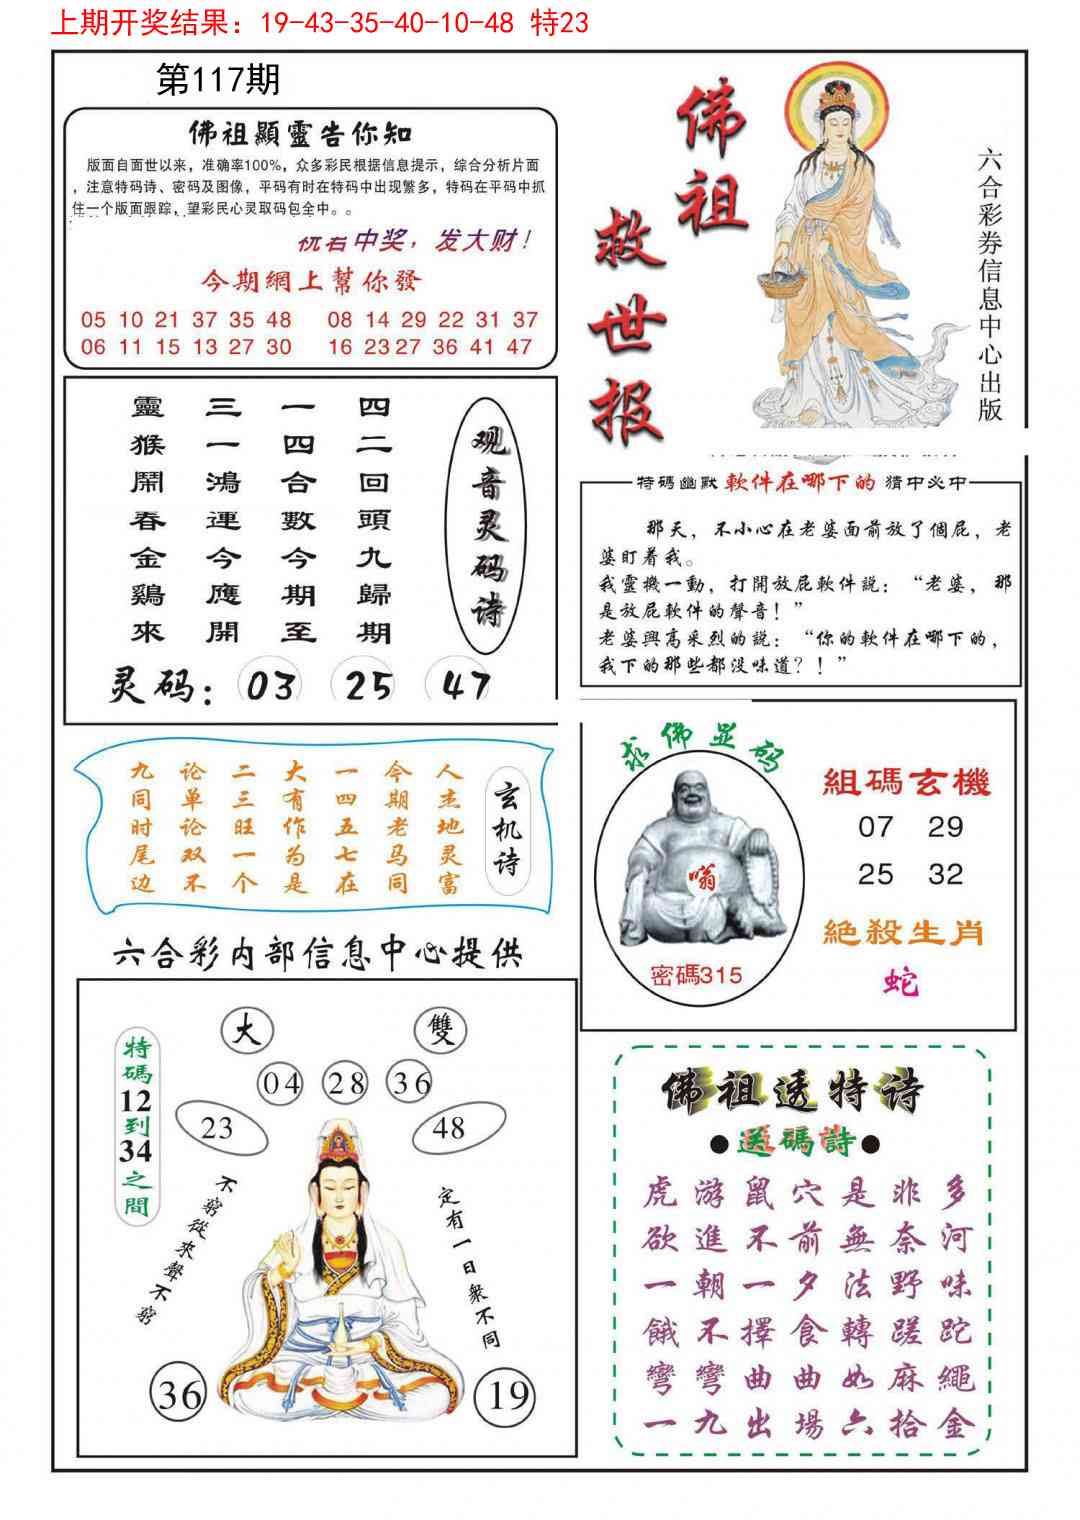 上期开奖结果：19-43-35-40-10-48 特23
第117期
佛祖顯靈告你知
版面自面世以来，准确率100%，众多彩民根据信息提示，综合分析片面
，注意特码诗、密码及图像，平码有时在特码中出现繁多，特码在平码中抓
住一个版面跟踪，望彩民心灵取码包全中。。
祝君中奖，发大财！
今期網上幫你發
05 10 21 37 35 48 08 14 29 22 31 37
06 11 15 13 27 30 16 23 27 36 41 47
佛祖
救世报
六合彩券信息中心出版
靈猴鬧春金鷄來
三一鴻運今應開
一四合數今期至
四二回頭九歸期
观音灵码诗
灵码：03 25 47
特碼幽默 軟件在哪下的 猜中必中
那天，不小心在老婆面前放了個屁，老
婆盯着我。
我靈機一動，打開放屁軟件説：“老婆，那
是放屁軟件的聲音！”
老婆興高采烈的說：“你的軟件在哪下的，
我下的那些都没味道？！”
玄机诗
人杰地灵富
今期老马同
一四五七在
大有作为是
二三旺一个
论单论双不
九同时尾边
求佛显码
嗡
密碼315
組碼玄機
07 29
25 32
絕殺生肖
蛇
六合彩内部信息中心提供
大 雙
04 28 36
23 48
特碼12到34之間
不窮從來聲不窮
定有一日衆不同
36 19
佛祖透特诗
●送碼詩●
虎游鼠穴是非多
欲進不前無奈河
一朝一夕法野味
餓不擇食轉蹉跎
彎彎曲曲如麻繩
一九出場六拾金